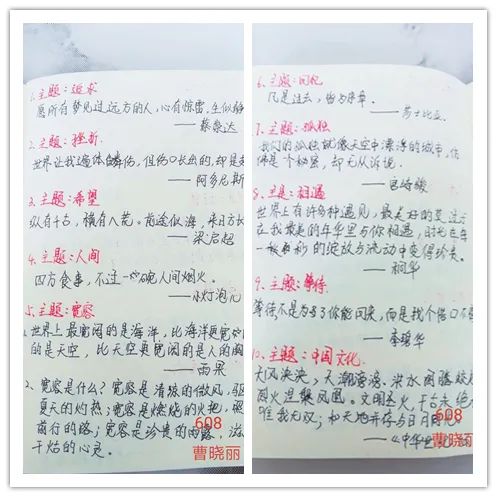 1、主题：追求
愿所有梦见过远方的人，心有惊雷，生似
——蔡崇达
2、主题：挫折
世界让我遍体鳞伤，但伤口长出的，却是
——阿多尼斯
3、主题：希望
纵有千古，横有八荒。前途似海，来日方长
——梁启超
4、主题：人间
四方食事，不过一碗人间烟火。
5、主题：宽容
1、世界上最宽阔的是海洋，比海洋更宽
的是天空，比天空更宽阔的是人的
——雨果
2、宽容是什么？宽容是清凉的微风，驱
夏天的灼热；宽容是燃烧的火把，照
前行的路；宽容是珍贵的雨露，滋
干焰的心灵。
608
曹晓丽
6、主题：回忆
凡是过去，皆为序章。
——莎士比亚
7、主题：孤独
我们的孤独就像天空中漂浮的城市，仿
佛是个秘密，却无从诉说。
——宫崎骏
8、主题：相遇
世界上有许多种遇见，最美好的莫过于
在我最美的年华里与你相遇，时光在每
一秒的绽放与流动中变得珍贵。
——桐华
9、主题：等待
等待不是为了你能回来，而是找个借口不
——李碧华
10、主题：中国文化
大风泱泱，大潮滂滂。洪水图腾蛟
国火涅槃凤凰。文明圣火，千古未绝
唯我无双；和天地并存与日月
608
曹晓丽